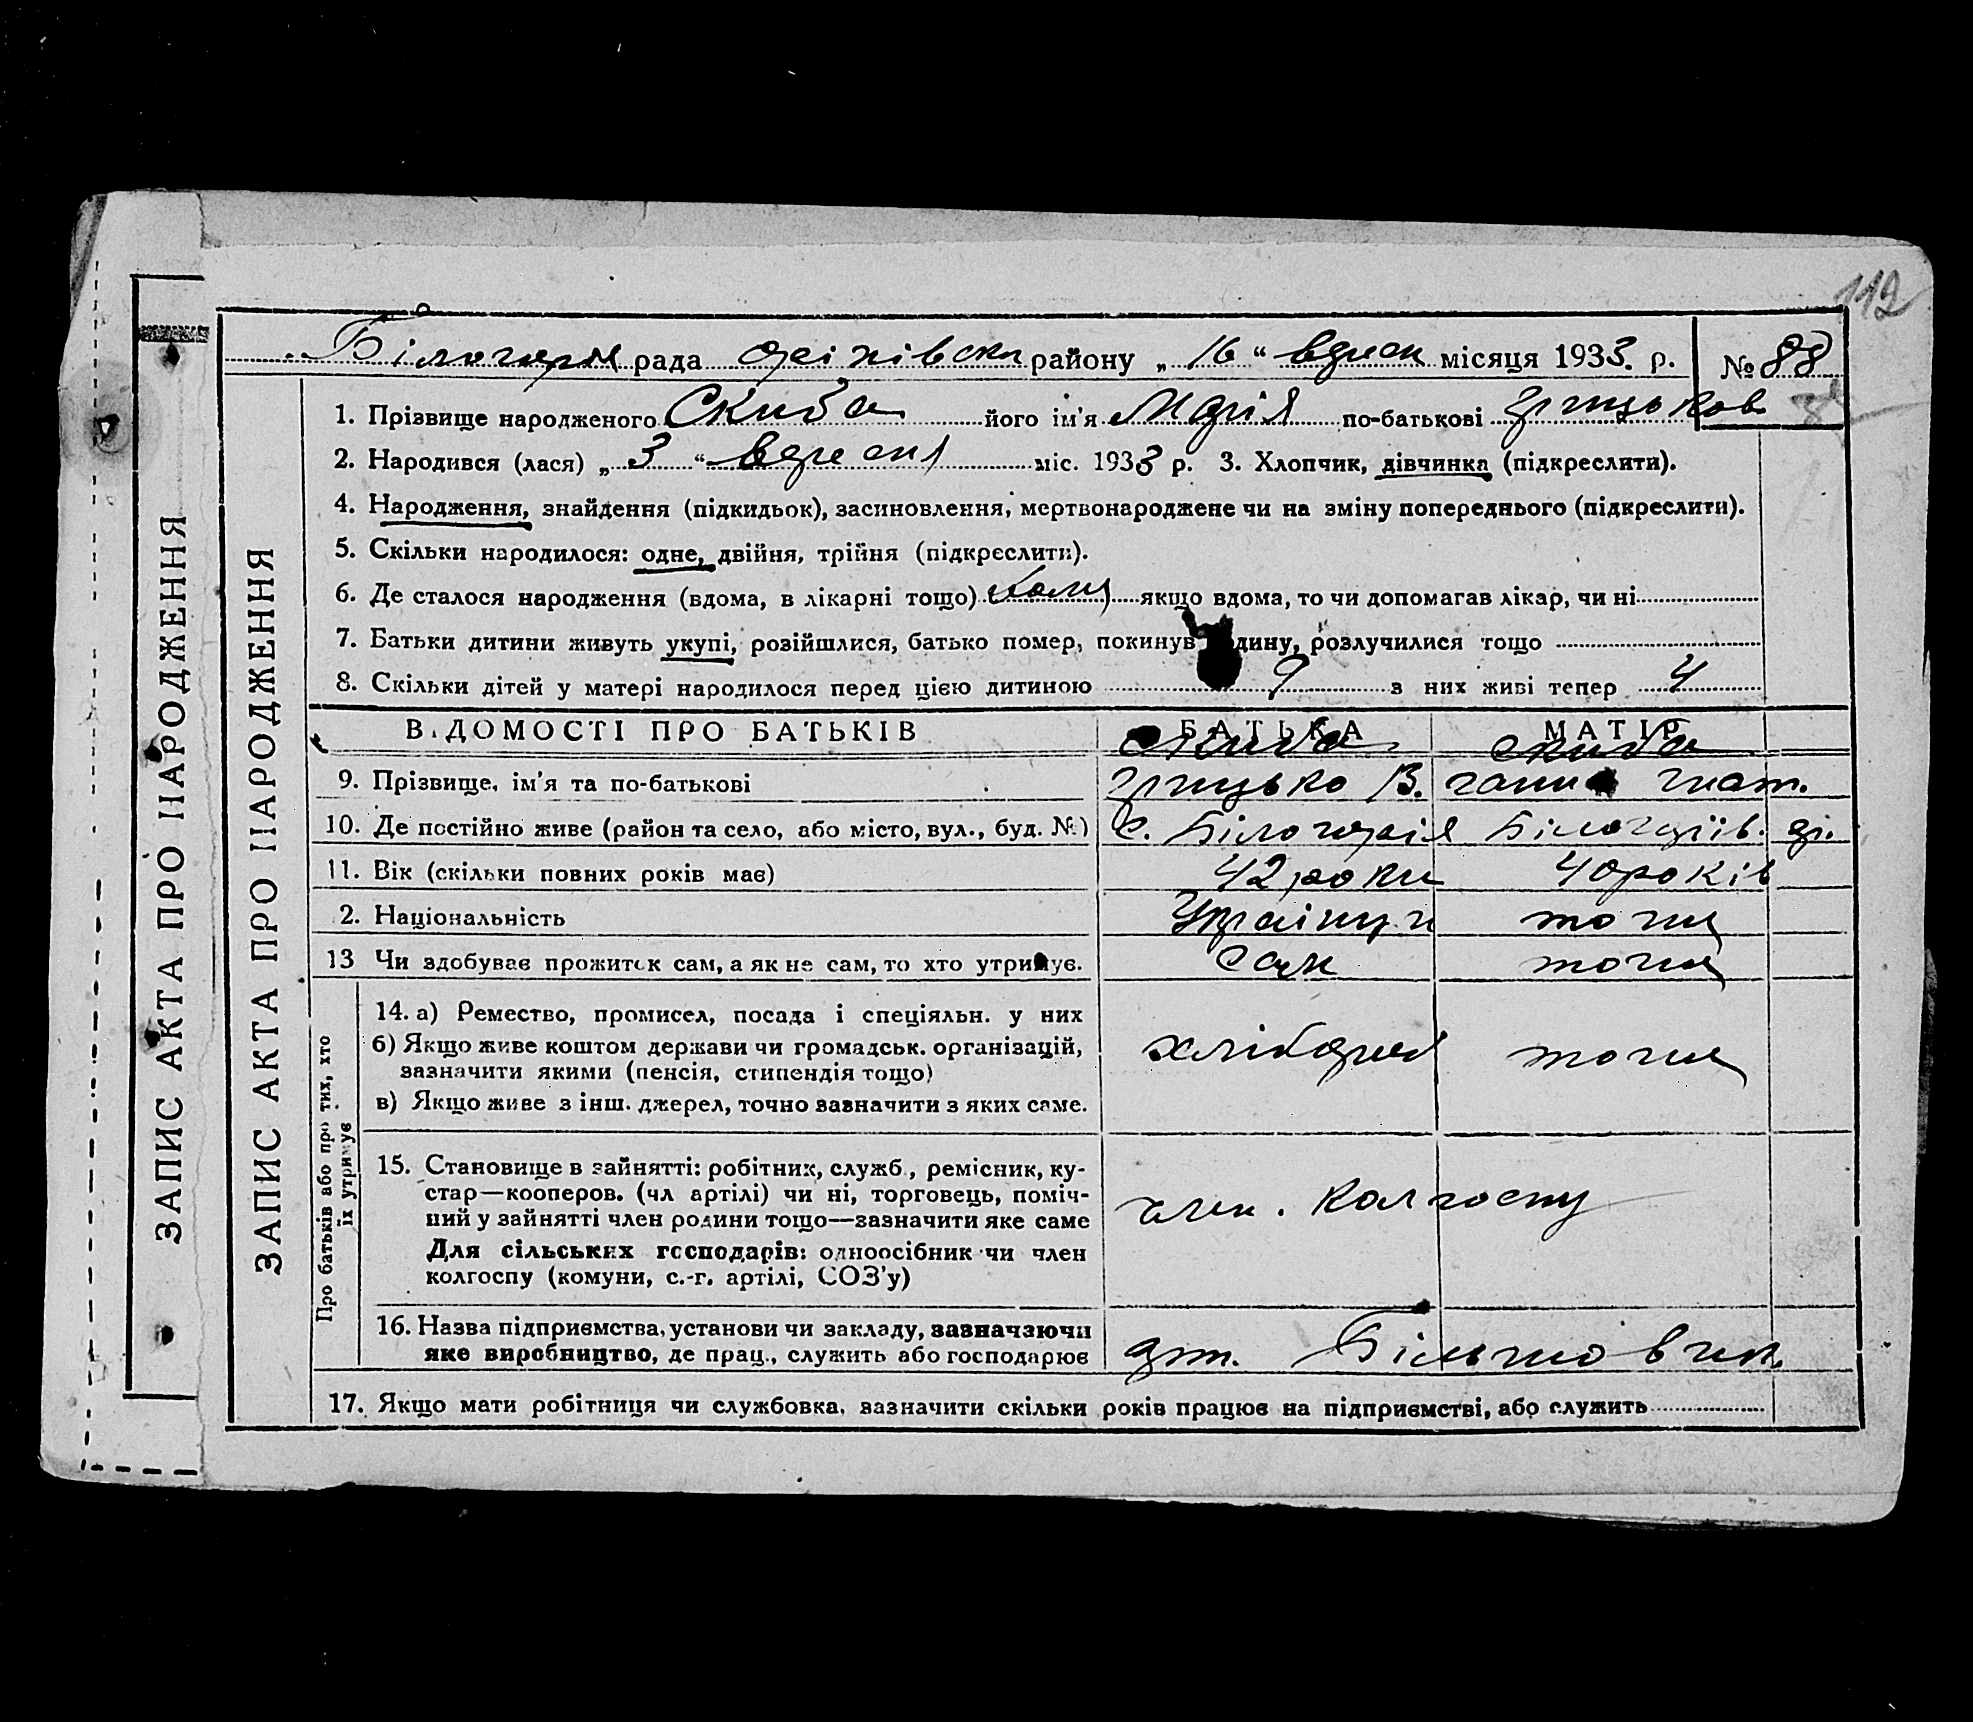 112
Білогор рада району „ 16 “ вдресн місяця 1933. р. № 88
1. Прізвище народженого Скиба його ім'я Марія по-батькові Грицьков
2. Народився (лася) „ 3 “ вдресня міс. 1933 р. 3. Хлопчик, дівчинка (підкреслити).
4. Народження, знайдення (підкидьок), засиновлення, мертвонароджене чи на зміну попереднього (підкреслити).
5. Скільки народилося: одне, двійня, трійня (підкреслити).
6. Де сталося народження (вдома, в лікарні тощо) якщо вдома, то чи допомагав лікар, чи ні
7. Батьки дитини живуть укупі, розійшлися, батько помер, покинув дину, розлучилися тощо
8. Скільки дітей у матері народилося перед цією дитиною 9 з них живі тепер 4
ВІДОМОСТІ ПРО БАТЬКІВ БАТЬКА МАТІР
Скиба Скиба
9. Прізвище, ім'я та по-батькові Грицько В. Ганна Гнат.
10. Де постійно живе (район та село, або місто, вул., буд. №) с. Білогорія Білогорів.
11. Вік (скільки повних років має) 42 роки 40 років
2. Національність Українц тогиж
13 Чи здобуває прожиток сам, а як не сам, то хто утримує. Сам тогиж
14. а) Ремество, промисел, посада і спеціяльн. у них
б) Якщо живе коштом держави чи громадськ. організацій,
зазначити якими (пенсія, стипендія тощо)
хлібороб тогиж
в) Якщо живе з інш. джерел, точно зазначити з яких саме.
15. Становище в зайнятті: робітник, служб., ремісник, ку-
стар—кооперов. (чл артілі) чи ні, торговець, поміч-
ний у зайнятті член родини тощо—зазначити яке саме
член. колгоспу
Для сільських господарів: одноосібник чи член
колгоспу (комуни, с.-г. артілі, СОЗ'у)
16. Назва підприємства, установи чи закладу, зазначаючи
яке виробництво, де прац., служить або господарює
арт. Більшовик
17. Якщо мати робітниця чи службовка, зазначити скільки років працює на підприємстві, або служить
Про батьків або про тих, хто
їх утримує
ЗАПИС АКТА ПРО НАРОДЖЕННЯ
ЗАПИС АКТА ПРО НАРОДЖЕННЯ